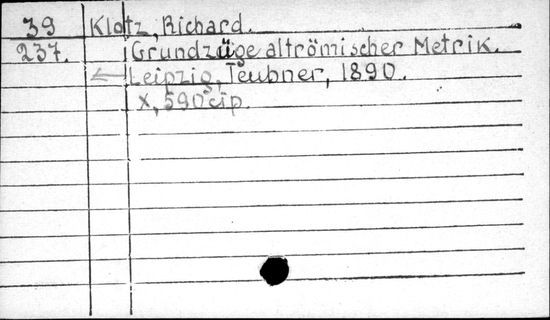 39 Klotz, Richard.
237. Grundzüge altrömischer Metrik.
Leipzig, Teubner, 1890.
X, 590 p.